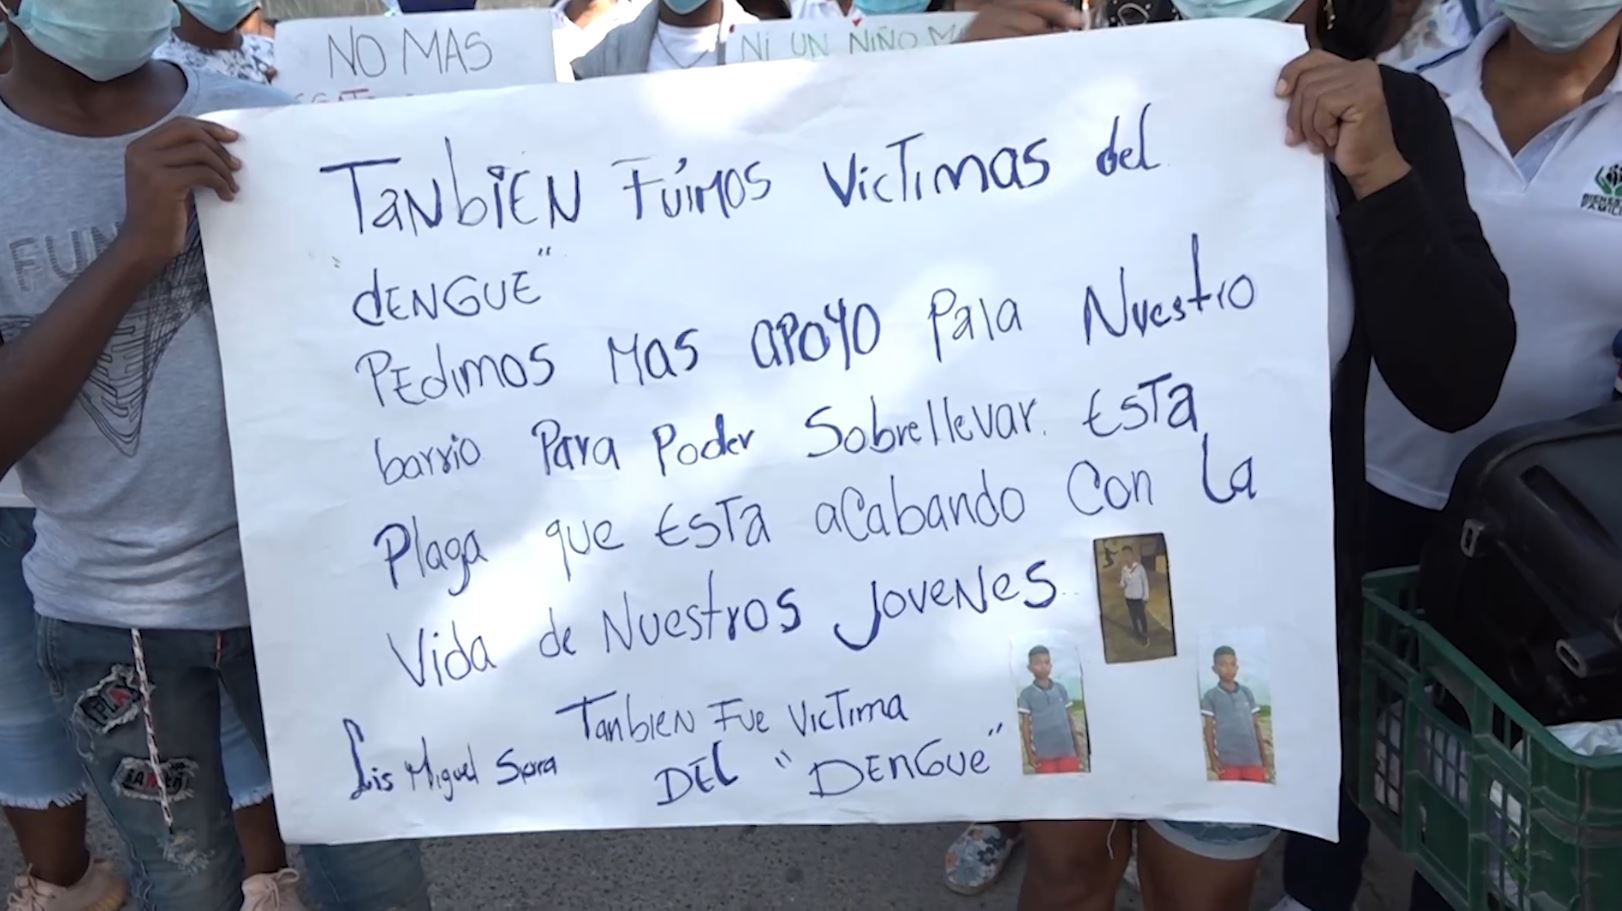 NO MAS
NI UN NIÑO M
TANbiEN FUiMOS VicTimas del
"dENGUE"
PEdimos MAS APOYO Para Nuestro
barrio Para Poder Sobrellevar. ESTA
Plaga que ESTA acabando Con La
Vida de NuestroS JoveNes
TanbieN FuE VicTima
Lis Miguel
DEL "DENGUE"
FUN
PLAY
BIENESTAR
FAMILIAR